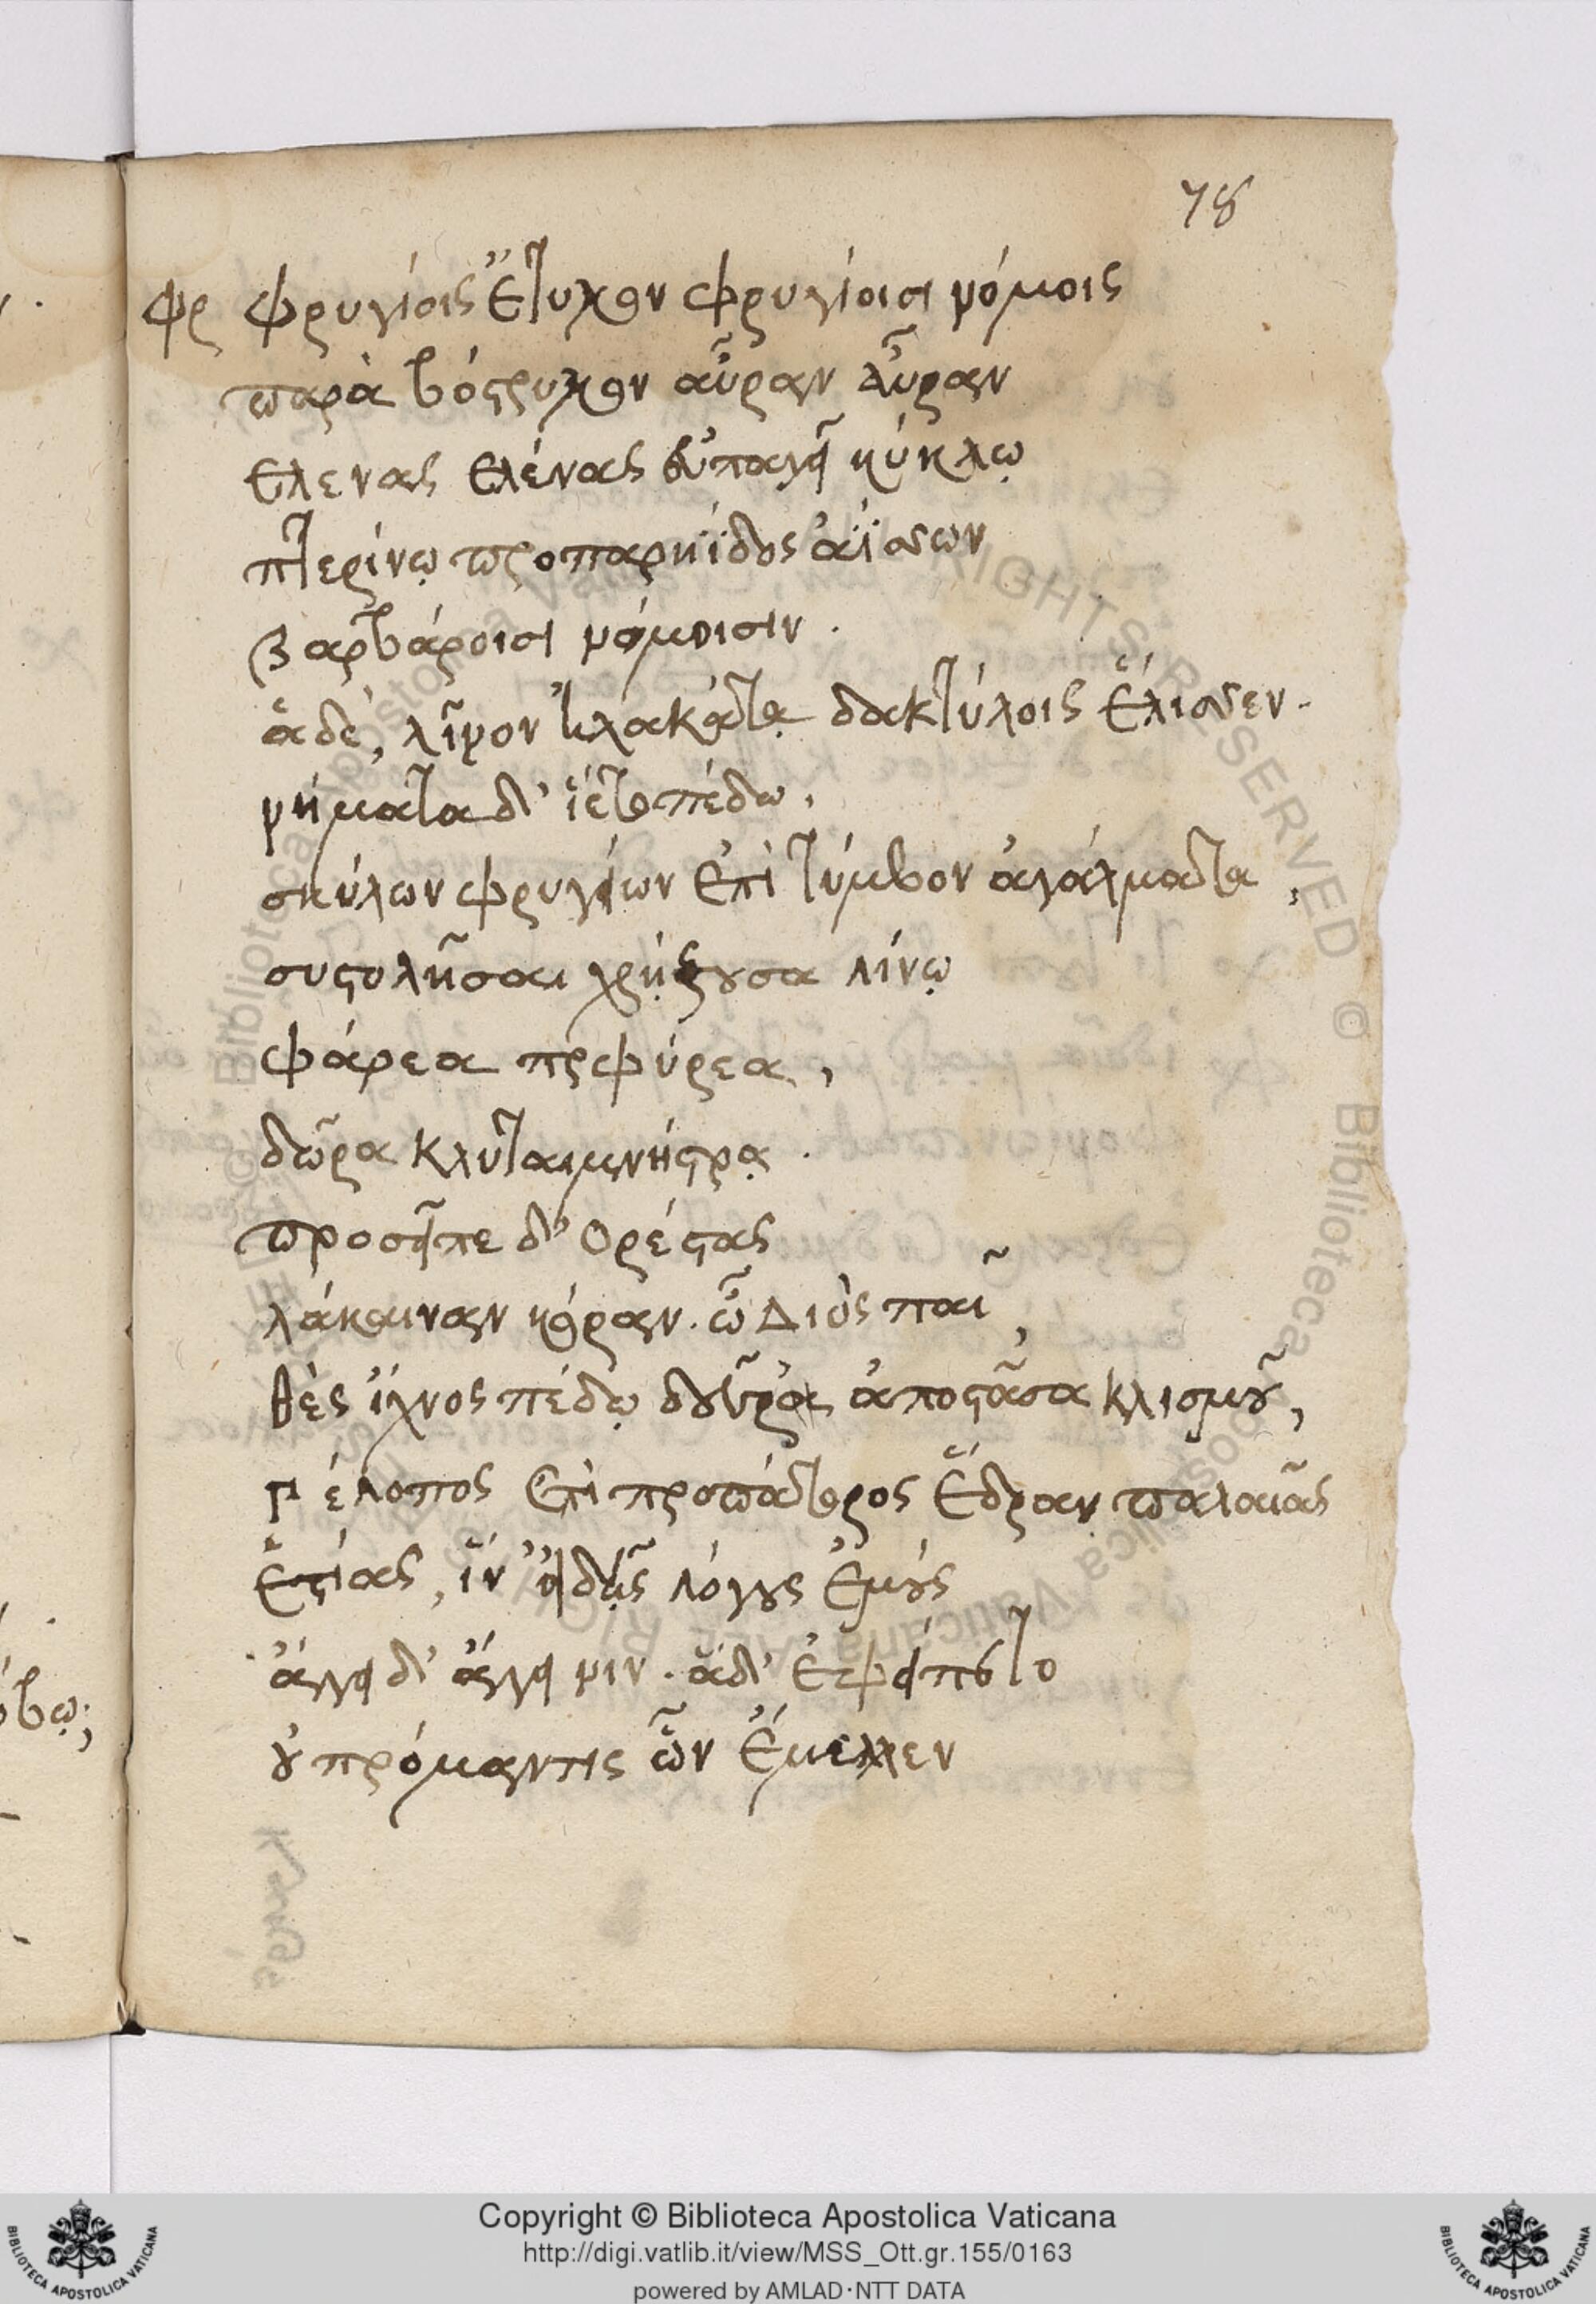 78
φρ φρυγίοις ἔτυχον φρυγίοισι νόμοις
παρὰ βόστρυχον αὖραν αὖραν
ελενας ελένας εὐπαγεῖ κύκλῳ
πτερίνῳ προπαρηΐδος ἀΐσσων
βαρβάροισι νόμοισιν .
ἁ δὲ, λῖνον ἠλακάτᾳ δακτύλοις ἕλισσεν .
νήματα δ' ἵετο πέδω ,
σκύλων φρυγίων ἐπὶ τύμβον ἀγάλματα ,
συστολῆσαι χρῄζουσα λίνῳ
φάρεα πορφύρεα ,
δῶρα κλυταιμνήστρᾳ .
προσεῖπε δ' ορέστας
λάκαιναν κόραν . ὦ Διὸς παῖ ,
θὲς ἴχνος πέδῳ δεῦρο ἀποστᾶσα κλισμοῦ ,
Πέλοπος ἐπὶ προπάτορος ἕδραν παλαιᾶς
ἑστίας , ἵν' εἰδῇς λόγους ἐμούς
ἄγει δ' ἄγει νιν . ἁ δ' ἐφείπετο
οὐ πρόμαντις ὧν ἔμελλεν
Copyright © Biblioteca Apostolica Vaticana
http://digi.vatlib.it/view/MSS_Ott.gr.155/0163
powered by AMLAD·NTT DATA
BIBLIOTECA APOSTOLICA VATICANA
BIBLIOTECA APOSTOLICA VATICANA